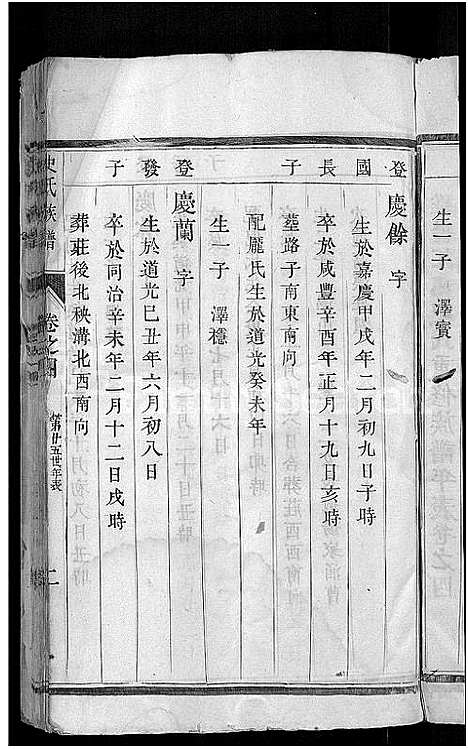 生一子 澤賓
登國長子
慶餘 字
生於嘉慶甲戌年二月初九日子時
卒於咸豐辛酉年正月十九日亥時
塟路子南東南向
配龐氏生於道光癸未年
生一子 澤穩
登發子
慶蘭 字
生於道光己丑年六月初八日
卒於同治辛未年二月十二日戌時
葬莊後北秧溝北西南向
史氏族譜
卷之四
第廿五世年表
二